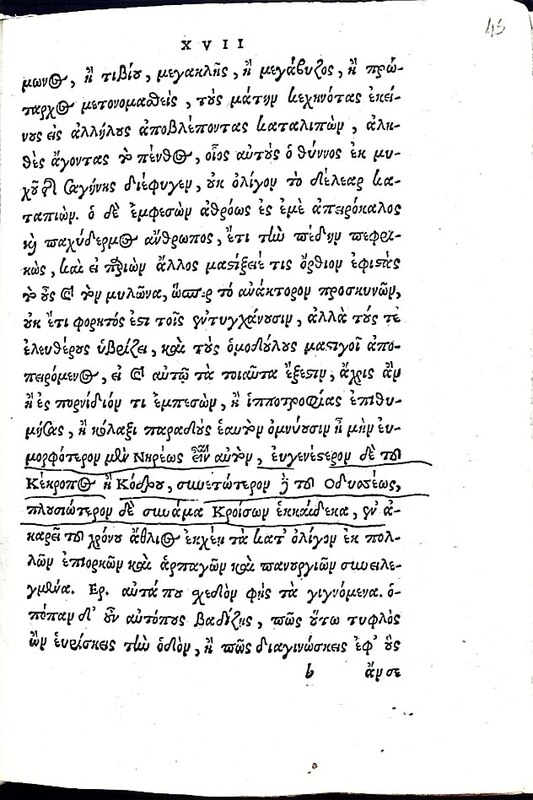 45
XVII
μωνος, ἢ τιβίου, μεγακλῆς, ἢ μεγάβυζος, ἢ πρώ-
ταρχος μετονομασθεὶς, τοὺς μάτην κεχηνότας ἐκεί-
νους εἰς ἀλλήλους ἀποβλέποντας καταλιπὼν, ἀλη-
θὲς ἄγοντας τὸ πένθος, οἷος αὐτοὺς ὁ θύννος ἐκ μυ-
χοῦ τῆς σαγήνης διέφυγεν, οὐκ ὀλίγον τὸ δέλεαρ κα-
ταπιών. ὁ δὲ ἐμπεσὼν ἀθρόως ἐς ἐμὲ ἀπειρόκαλος
καὶ παχύδερμος ἄνθρωπος, ἔτι τὴν πέδην πεφρι-
κὼς, καὶ εἰ παριὼν ἄλλος μαστίξειέ τις ὄρθιον ἐφιστὰς
τὸ οὖς καὶ τὸν μυλῶνα, ὥσπερ τὸ ἀνάκτορον προσκυνῶν,
οὐκ ἔτι φορητός ἐστι τοῖς ἐντυγχάνουσιν, ἀλλὰ τούς τε
ἐλευθέρους ὑβρίζει, καὶ τοὺς ὁμοδούλους μαστιγοῖ ἀπο-
πειρώμενος, εἰ καὶ αὐτῷ τὰ τοιαῦτα ἔξεστιν, ἄχρις ἂν
ἢ ἐς πορνίδιόν τι ἐμπεσὼν, ἢ ἱπποτροφίας ἐπιθυ-
μήσας, ἢ κόλαξι παραδοὺς ἑαυτὸν ὀμνύουσιν ἦ μὴν εὐ-
μορφότερον μὲν Νηρέως εἶναι αὐτὸν, εὐγενέστερον δὲ τοῦ
Κέκροπος ἢ Κόδρου, συνετώτερον δὲ τοῦ Οδυσσέως,
πλουσιώτερον δὲ συνάμα Κροίσων ἑκκαίδεκα, ἐν ἀ-
καρεῖ τοῦ χρόνου ἄθλιος ἐκχέῃ τὰ κατ' ὀλίγον ἐκ πολ-
λῶν ἐπιορκιῶν καὶ ἁρπαγῶν καὶ πανουργιῶν συνειλε-
γμένα. Ερ. αὐτά που σχεδὸν φῂς τὰ γιγνόμενα. ὁ-
πόταν δ' οὖν αὐτόπους βαδίζῃς, πῶς οὕτω τυφλὸς
ὢν εὑρίσκεις τὴν ὁδὸν, ἢ πῶς διαγινώσκεις ἐφ' οὓς
b ἄν σε